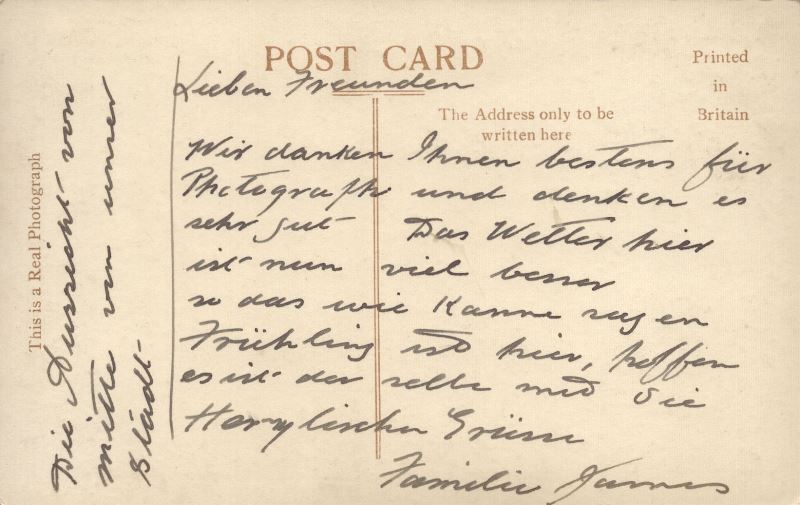 POST CARD
Printed
in
Britain
The Address only to be
written here
This is a Real Photograph
Lieben Freunden
Wir danken Ihnen bestens für
Photografh und denken es
sehr gut Das Wetter hier
ist nun viel besser
so das wie Kanne sagen
Frühling ist hier, hoffen
es ist der selbe mit Sie
Herzlischen Grüsse
Familie James
Die Aussicht von
mitte von unser
Stadt